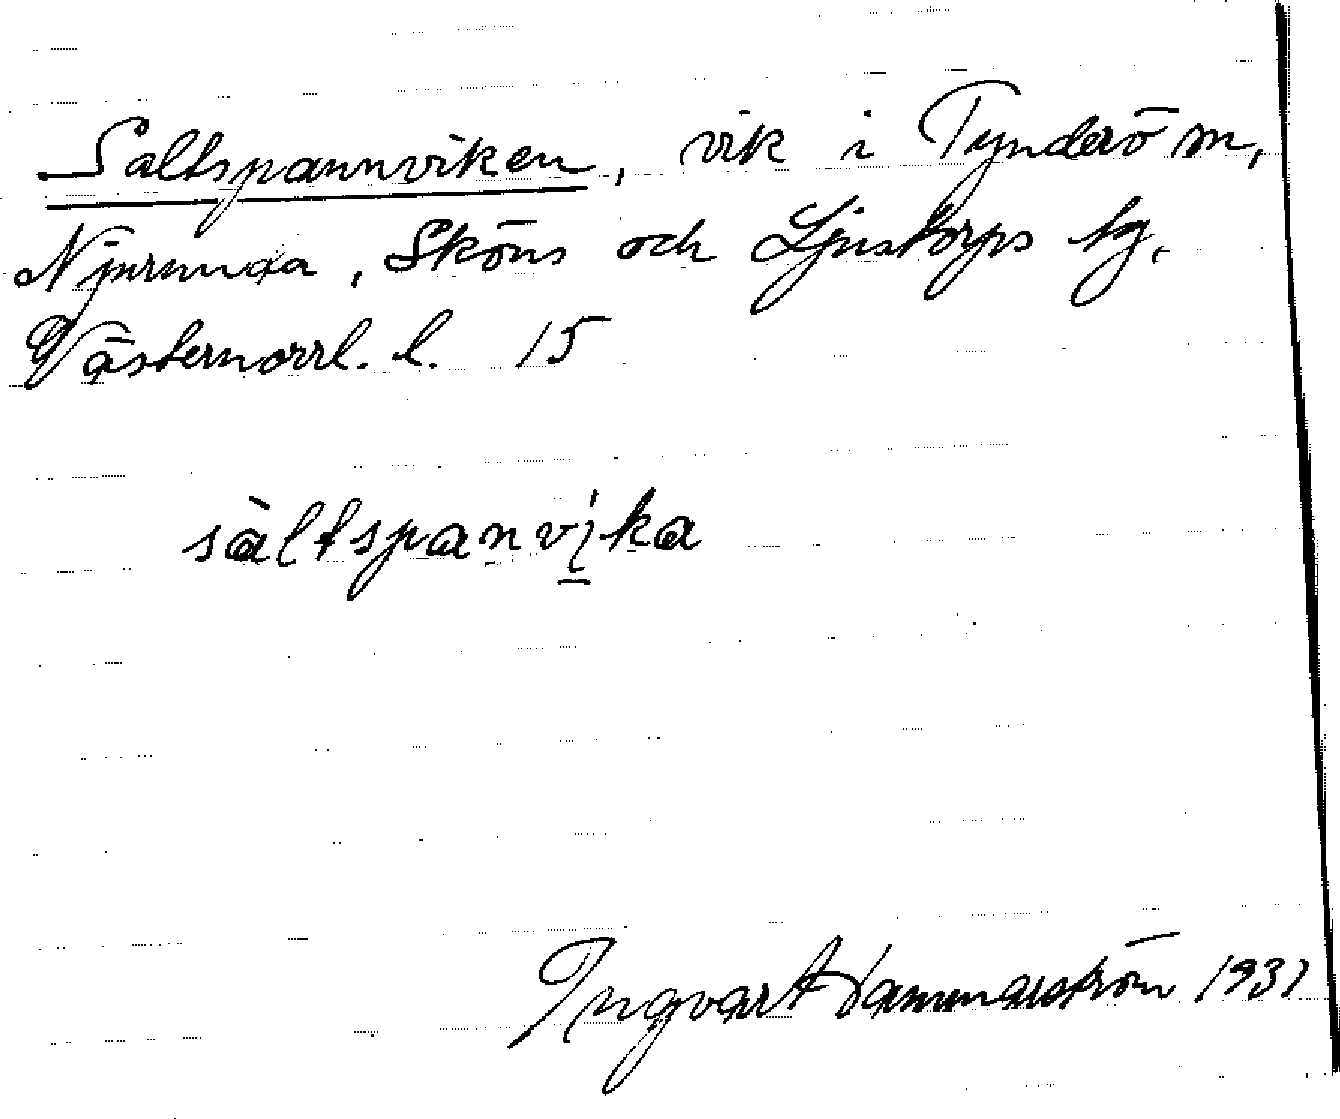 Saltspannviken, vik i Tynderö sn,
Njurunda, Sköns och Ljustorps tg,
Västernorrl. l. 15
sàltspanvi̲ka
Ingvar Hammarström 1931